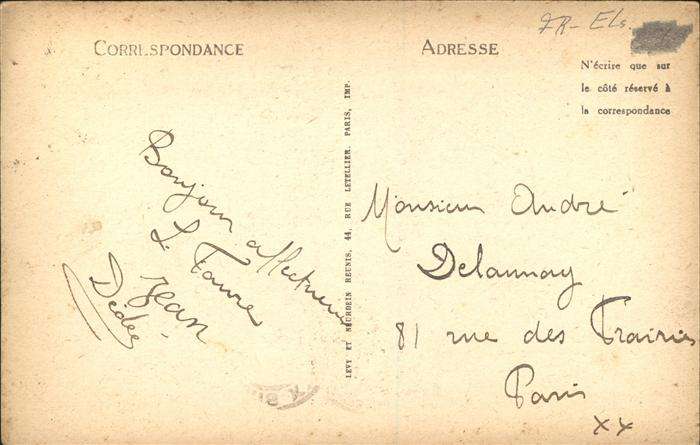 FR- Els.
CORRESPONDANCE
ADRESSE
N'écrire que sur
le côté réservé à
la correspondance
Bonjour affectueux
L. Faure
Jean
Dédée
LEVY ET NEURDEIN REUNIS, 44, RUE LETELLIER, PARIS, IMP.
Monsieur André
Delaunay
81 rue des Prairies
Paris
XX